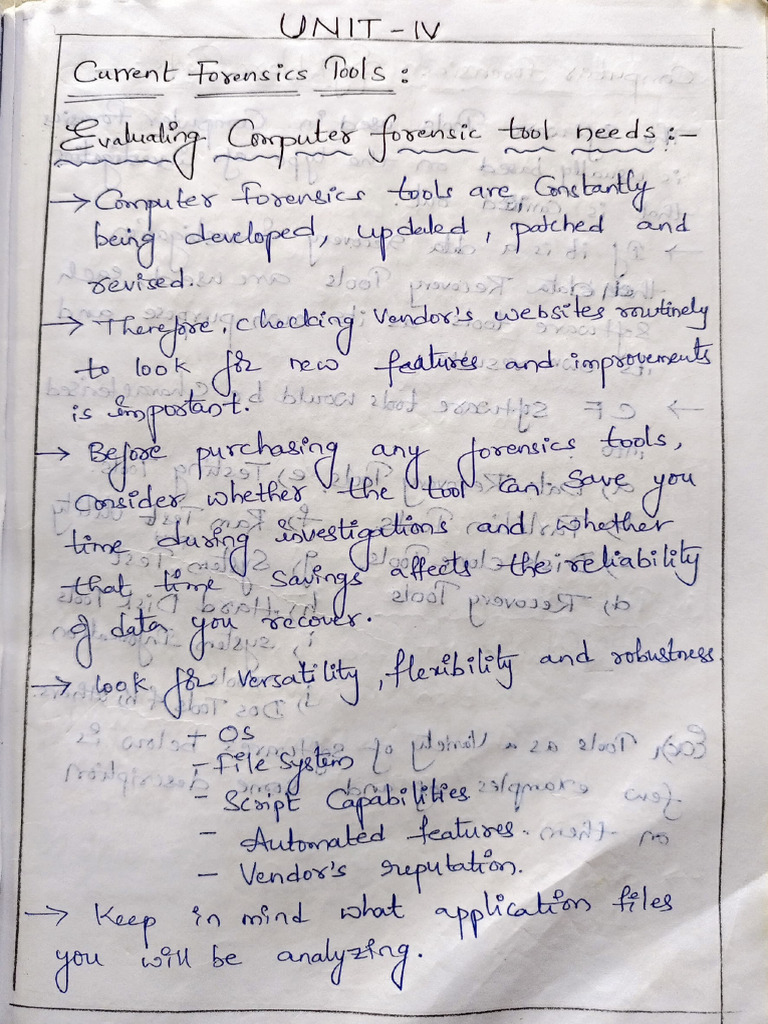 UNIT - IV
Current Forensics Tools :
Evaluating Computer forensic tool needs :-
→ Computer Forensics tools are Constantly
being developed, updated, patched and
revised.
→ Therefore, checking Vendor's websites routinely
to look for new features and improvements
is important.
→ Before purchasing any forensics tools,
Consider whether the tool can save you
time during investigations and whether
that time savings affects the reliability
of data you recover.
→ look for versatility, flexibility and robustness
- OS
- File System
- Script Capabilities
- Automated features.
- Vendor's reputation.
→ Keep in mind what application files
you will be analyzing.